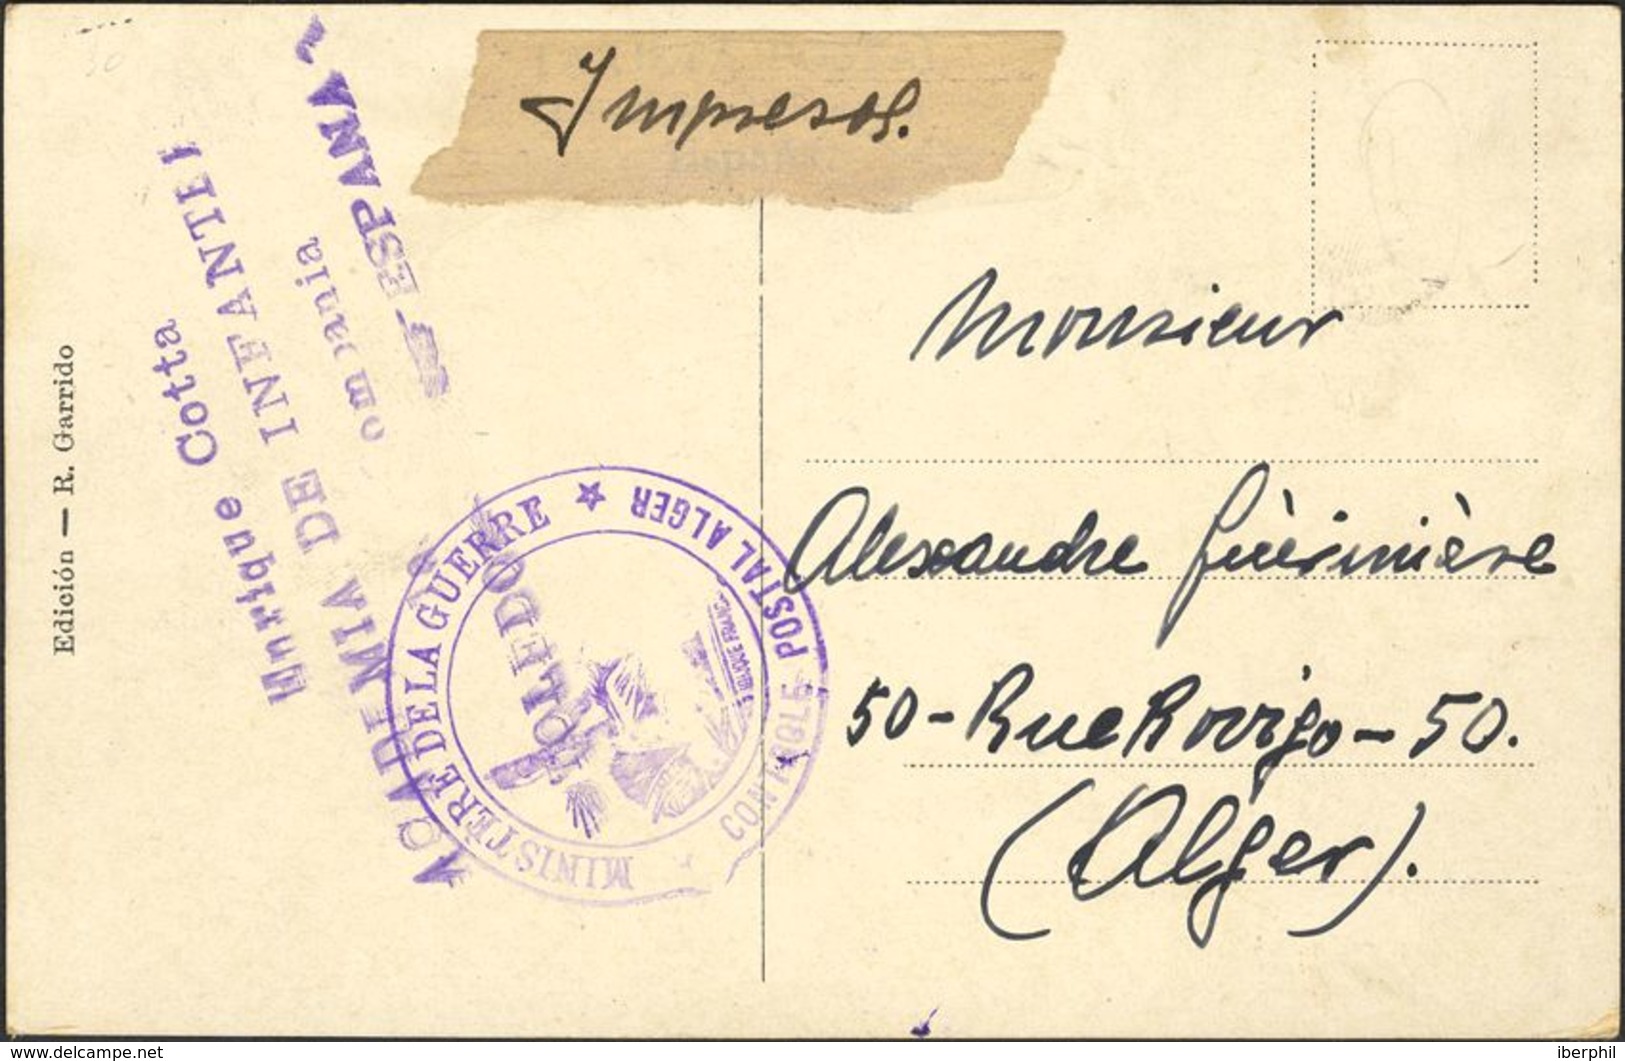 Impresos.
Monsieur
Alexandre Guèrinière
50-Rue Rovigo-50.
(Alger).
Edición — R. Garrido
Enrique Cotta
ACADEMIA DE INFANTER
ompania
TOLEDO
ESPAÑA
MINISTÈRE DE LA GUERRE ★ CONTROLE POSTAL ALGER
iberphil
www.delcampe.net